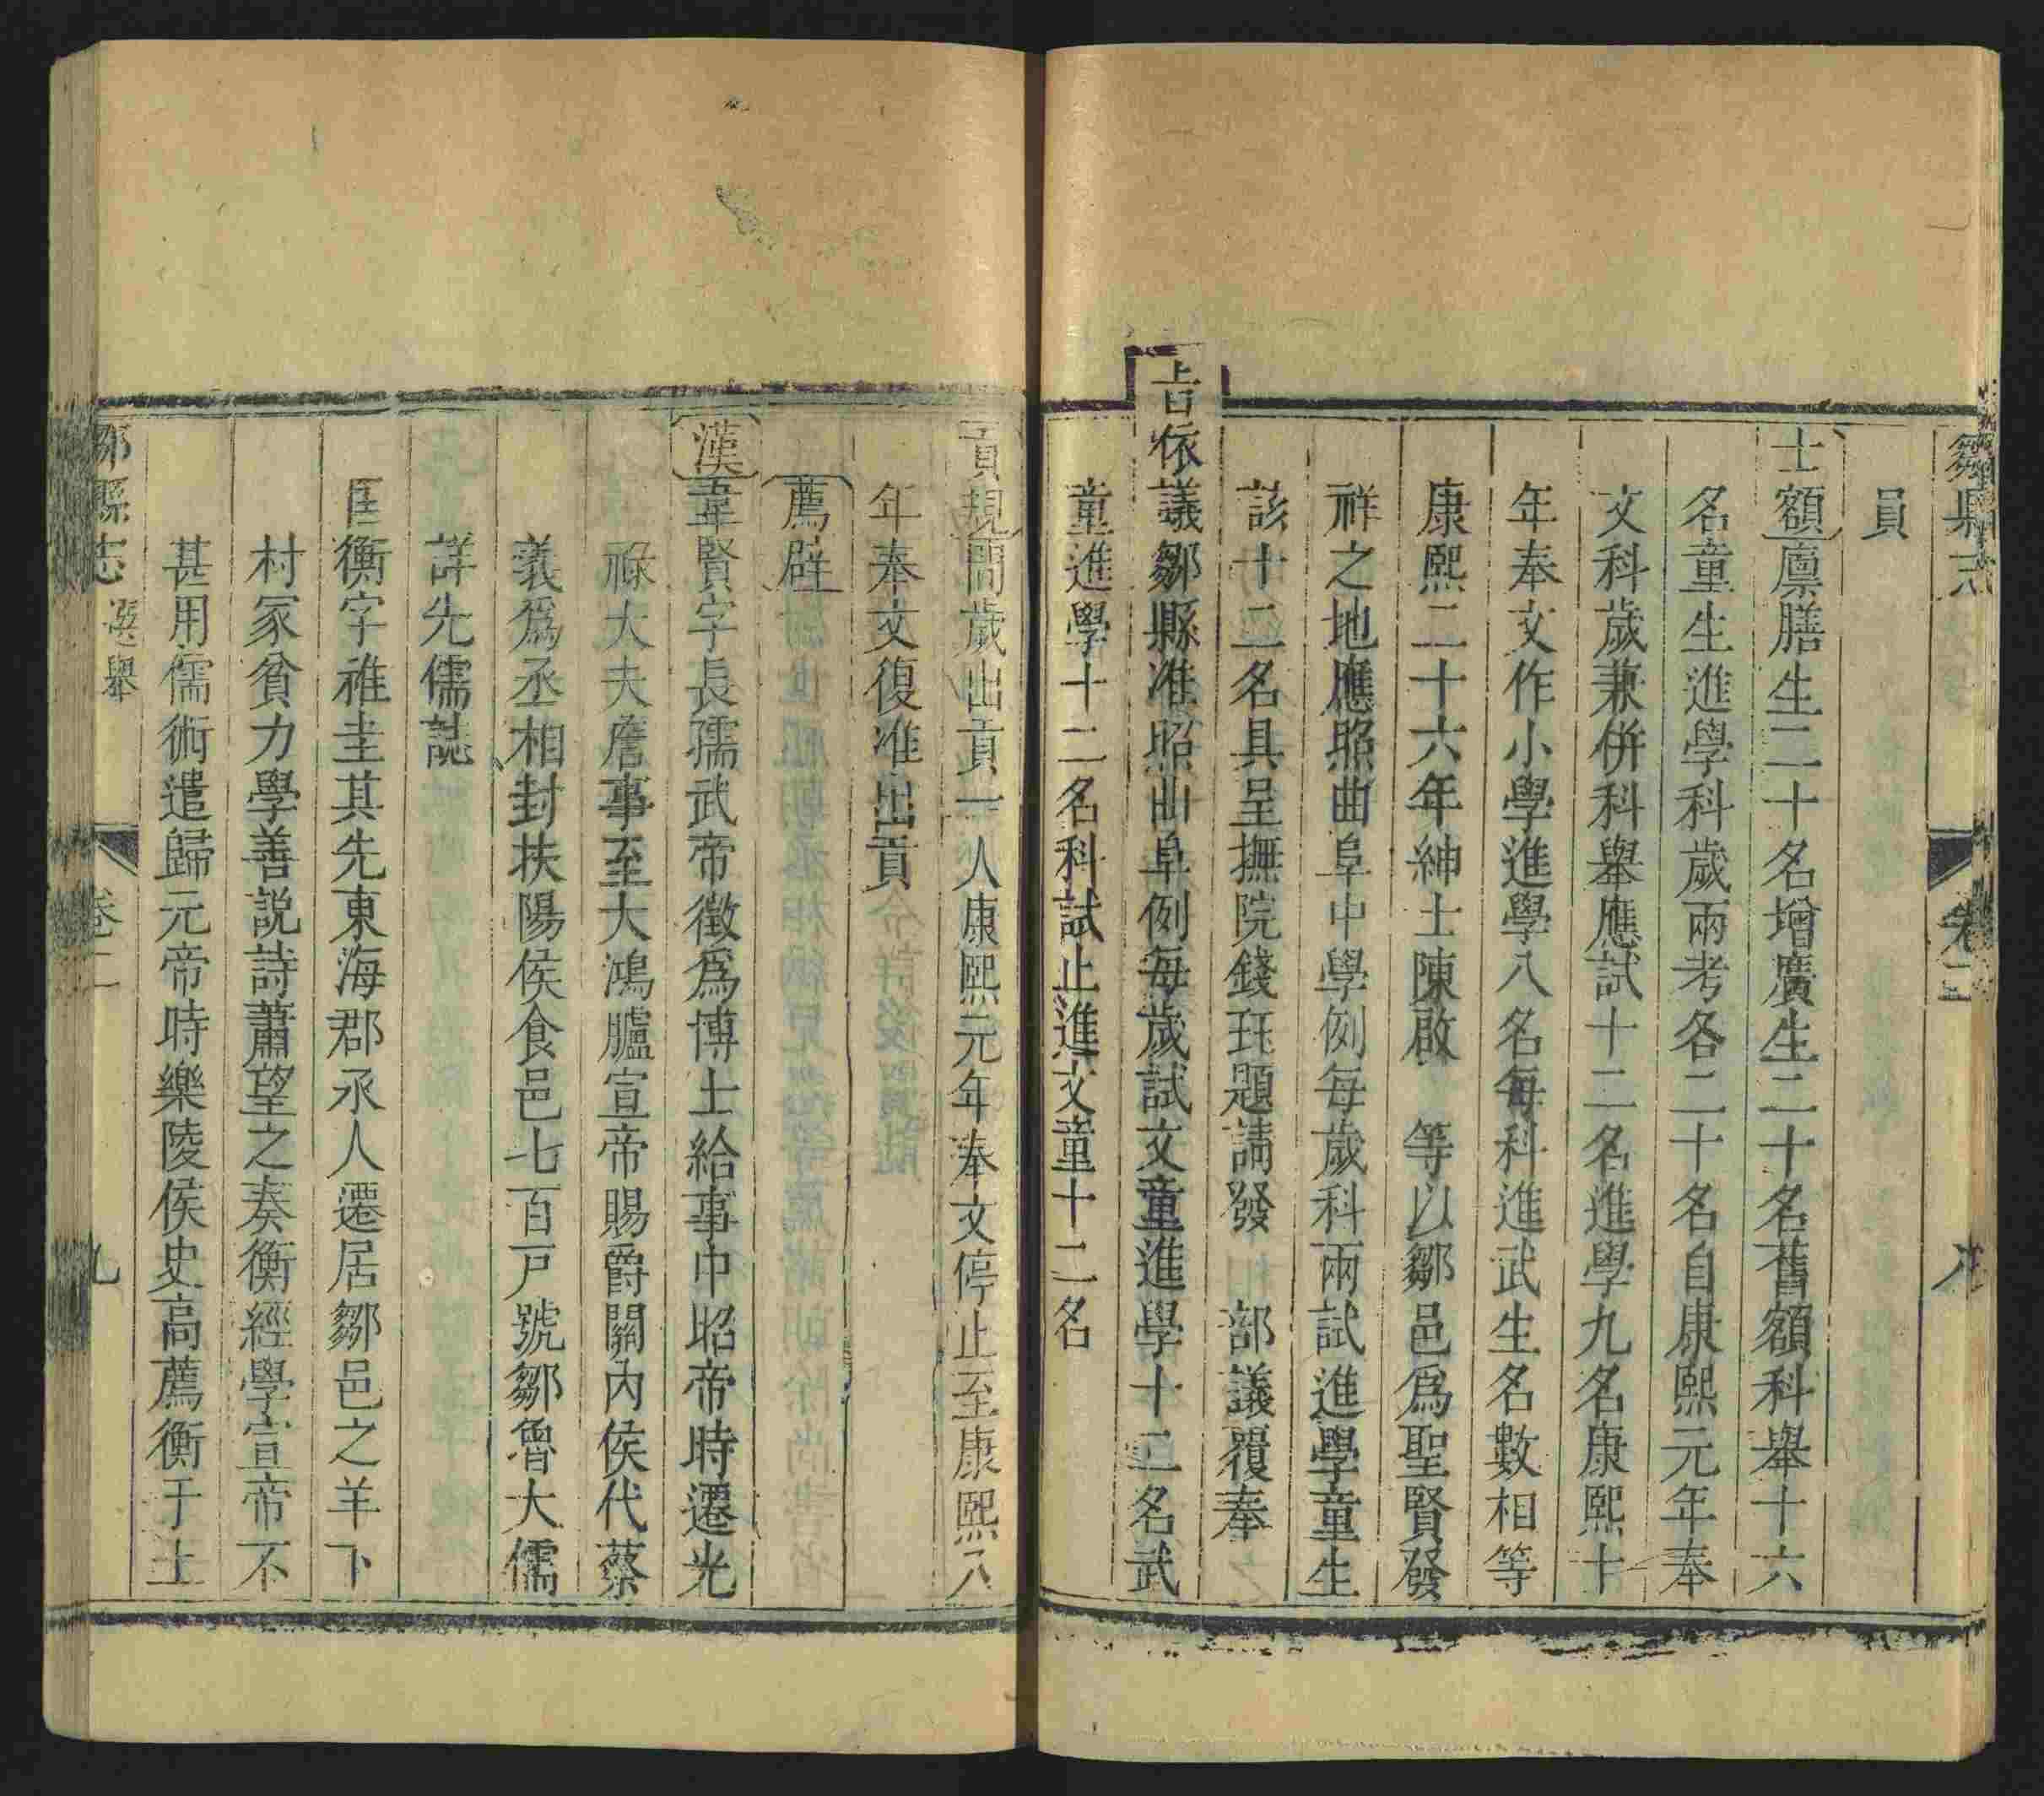 鄒縣志 卷二
員
士額廩膳生二十名增廣生二十名舊額科舉十六
名童生進學科歲兩考各二十名自康熙元年奉
文科歲兼併科舉應試十二名進學九名康熙十
年奉文作小學進學八名每科進武生名數相等
康熙二十六年紳士陳啟 等以鄒邑爲聖賢發
祥之地應照曲阜中學例每歲科兩試進學童生
該十二名具呈撫院錢珏題請發 部議覆奉
旨依議鄒縣准照曲阜例每歲試文童進學十二名武
童進學十二名科試止進文童十二名
貢規間歲出貢一人康熙元年奉文停止至康熙八
年奉文復准出貢
薦辟
漢韋賢字長孺武帝徵爲博士給事中昭帝時遷光
祿大夫詹事至大鴻臚宣帝賜爵關內侯代蔡
義爲丞相封扶陽侯食邑七百戸號鄒魯大儒
詳先儒誌
匡衡字稚圭其先東海郡承人遷居鄒邑之羊下
村家貧力學善說詩蕭望之奏衡經學宣帝不
甚用儒術遣歸元帝時樂陵侯史高薦衡于上
鄒縣志 選舉 卷二 九